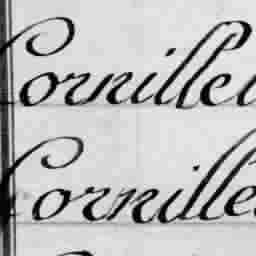 Cornille
Cornille